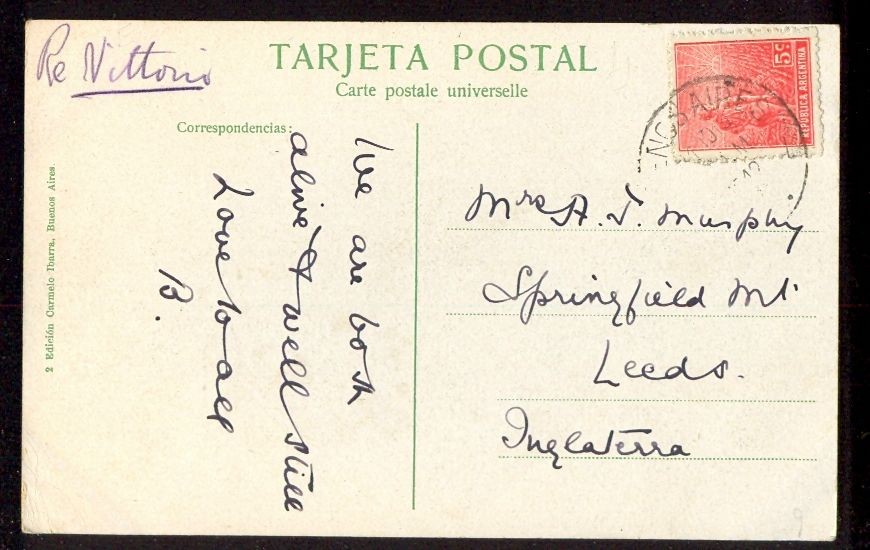 Re Vittorio
TARJETA POSTAL
Carte postale universelle
5c
REPÚBLICA ARGENTINA
Correspondencias:
We are both
alive & well still
Love to all
B.
Mrs A. J. Murphy
Springfield Mt
Leeds.
Inglaterra
2 Edición Carmelo Ibarra, Buenos Aires